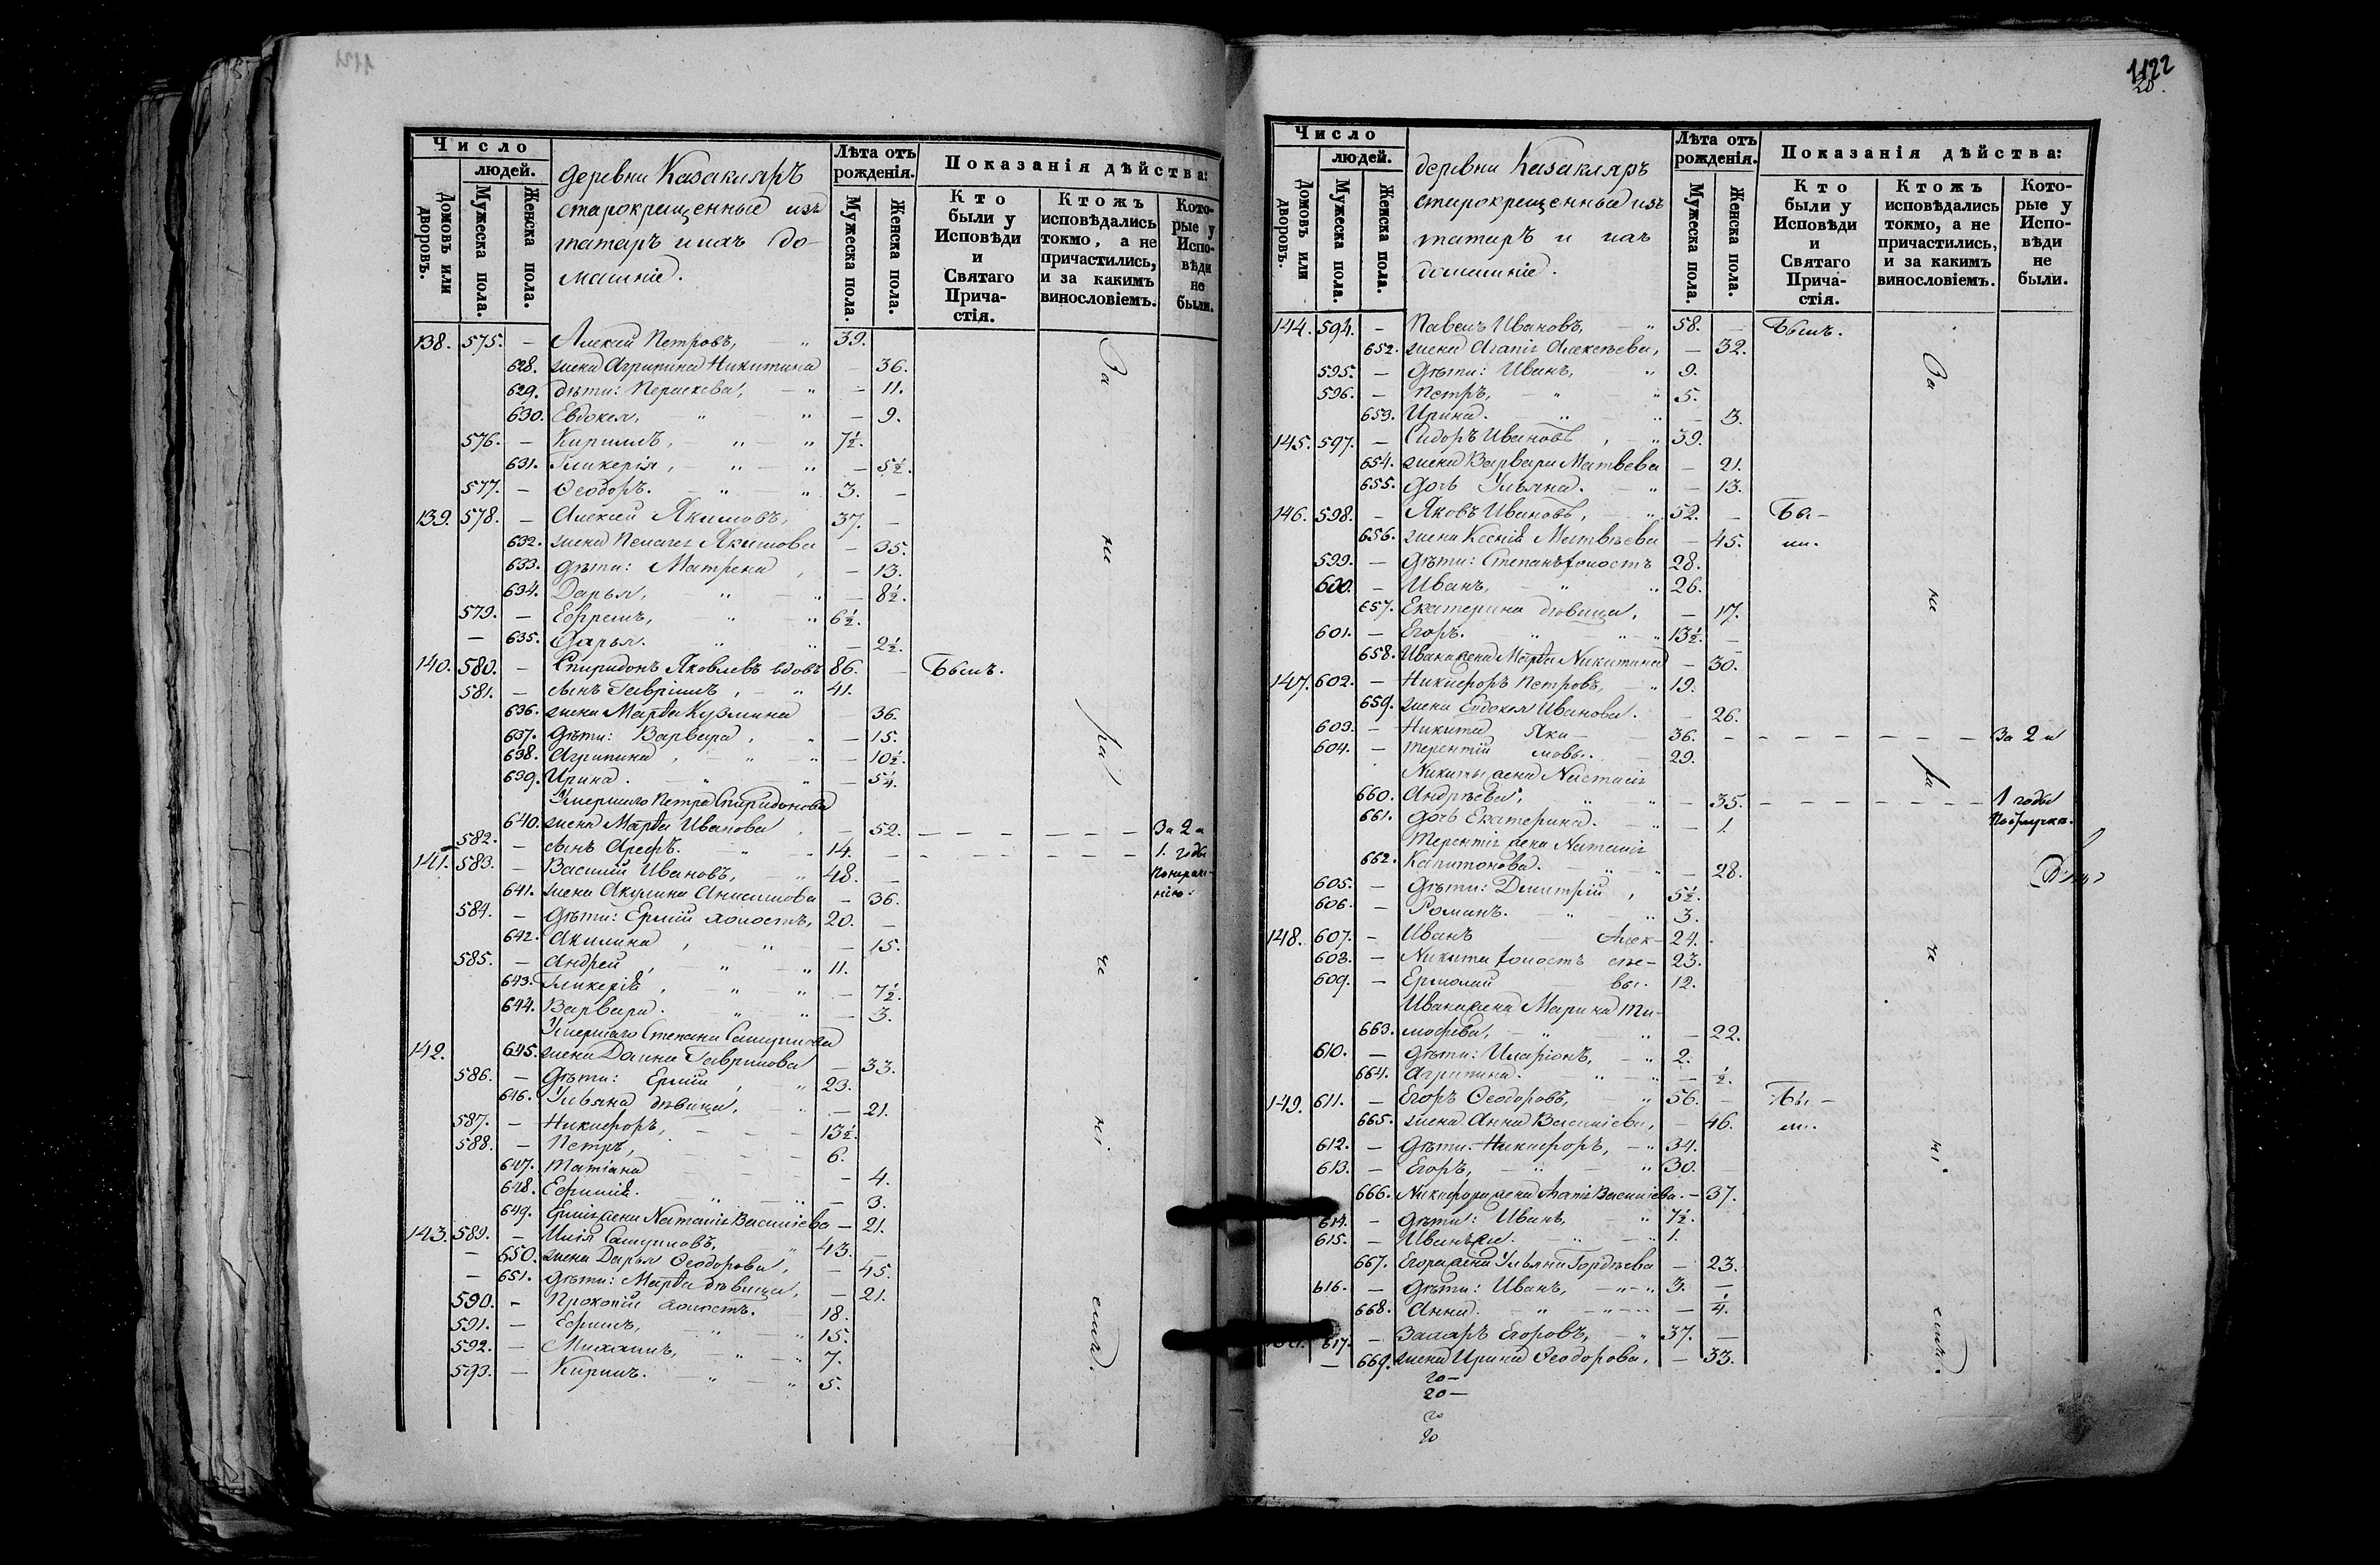 Число
людей.
Домовъ или дворовъ.
Мужеска пола.
Женска пола.
деревни Казакляръ
старокрещенные изъ
татаръ и ихъ до-
машніе.
Лѣта отъ рожденія.
Мужеска пола.
Женска пола.
Показанія дѣйства:
Кто были у Исповѣди и Святаго Прича-стія.
Ктожъ исповѣдались токмо, а не причастились, и за какимъ винословіемъ.
Кото-рые у Испо-вѣди не были.
138. 575. — Алексій Петровъ, 39.
628. жена Агрипина Никитина — 36.
629. дѣти: Параскева, — 11.
630. Евдокея, — 9.
576. — Кириллъ, 7½.
631. Гликерія, — 5½.
577. — Ѳеодоръ. 3. —
139. 578. — Алексій Якимовъ, 37. —
632. жена Пелагія Якимова — 35.
633. дѣти: Матрена, — 13.
634. Дарья, — 8½.
579. — Ефремъ, 6½.
— 635. Дарья. — 2½.
140. 580. — Спиридонъ Яковлевъ вдовъ 86. — Былъ.
581. — сынъ Гавріилъ, 41.
636. жена Марѳа Кузмина — 36.
637. дѣти: Варвара, — 15.
638. Агрипина, — 10½.
639. Ирина. — 5¼.
Умершаго Петра Спиридонова
640. жена Марѳа Иванова — 52. За 2 и
582. — сынъ Ареѳъ. 14. — 1. годъ
141. 583. — Василій Ивановъ, 48. —
641. жена Акулина Анисимова — 36.
584. — дѣти: Ермій холостъ, 20. —
642. Акилина, — 15.
585. — Андрей, 11.
643. Гликерія, — 7½.
644. Варвара. — 3.
Умершаго Степана
142. 645. жена Домна Гаврилова — 33.
586. — дѣти: Ермій, 23.
646. Ульяна дѣвица, — 21.
587. — Никифоръ, 13½.
588. — Петръ, 6.
647. Татіана — 4.
648. Ефимія. — 3.
649. Ермія жена Наталія Василіева — 21.
143. 589. — Илія 43. —
— 650. жена Дарья Ѳеодорова, — 45.
— 651. дѣти: Марѳа дѣвица, — 21.
590. — Прокопій холостъ. 18.
591. — Ефимъ, 15.
592. — Михаилъ, 7.
593. — Кирилъ. 5.
За не ра че ні емъ.
1122
20.
Число
людей.
Домовъ или дворовъ.
Мужеска пола.
Женска пола.
деревни Казакляръ
старокрещенные изъ
татаръ и ихъ
домашніе.
Лѣта отъ рожденія.
Мужеска пола.
Женска пола.
Показанія дѣйства:
Кто были у Исповѣди и Святаго Прича-стія.
Ктожъ исповѣдались токмо, а не причастились, и за какимъ винословіемъ.
Кото-рые у Испо-вѣди не были.
144. 594. — Павелъ Ивановъ, 58. — Былъ.
652. жена Агапія Алексѣева, — 32.
595. — дѣти: Иванъ, 9.
596. — Петръ, 5.
653. Ирина. — 3.
145. 597. — Сидоръ Ивановъ, 39.
654. жена Варвара Матвѣева — 21.
655. дочь Ульяна. — 13.
146. 598. — Яковъ Ивановъ, 52. — Бы-
656. жена Ксенія Матвѣева — 45. ли.
599. — дѣти: Степанъ холостъ 28.
600. — Иванъ, 26.
657. Екатерина дѣвица, — 17.
601. — Егоръ. 13½. —
658. Ивана жена Марѳа Никитина — 30.
147. 602. — Никифоръ Петровъ, 19.
659. жена Евдокея Иванова. — 26.
603. — Никита Яки- 36. За 2 и
604. — Терентій мовы. 29.
Никиты жена Настасія
660. Андрѣева, — 35. 1 годы
661. дочь Екатерина. — 1.
Терентія жена Наталія
662. Капитонова. — 28.
605. — дѣти: Димитрій, 5½.
606. — Романъ. 3.
148. 607. — Иванъ Алек- 24.
608. — Никита холостъ сѣе- 23.
609. — Ермолай вы. 12.
Ивана жена Марина Ти-
663. мофеева, — 22.
610. — дѣти: Иларіонъ, 2.
664. Агрипина. — ½.
149. 611. — Егоръ Ѳеодоровъ, 56. — Бы-
665. жена Анна Василіева, — 46. ли.
612. — дѣти: Никифоръ, 34.
613. — Егоръ, 30.
666. Никифора жена Агапія Василіева. — 37.
614. — дѣти: Иванъ, 7½.
615. — Иванъ же. 1.
667. Егора жена Ульяна Гордѣева — 23.
616. — дѣти: Иванъ, 3. —
668. Анна. — ¼.
617. — Захаръ Егоровъ, 37. —
— 669. жена Ирина Ѳеодорова, — 33.
За не ра че ні емъ.
20 —
20 —
20
20